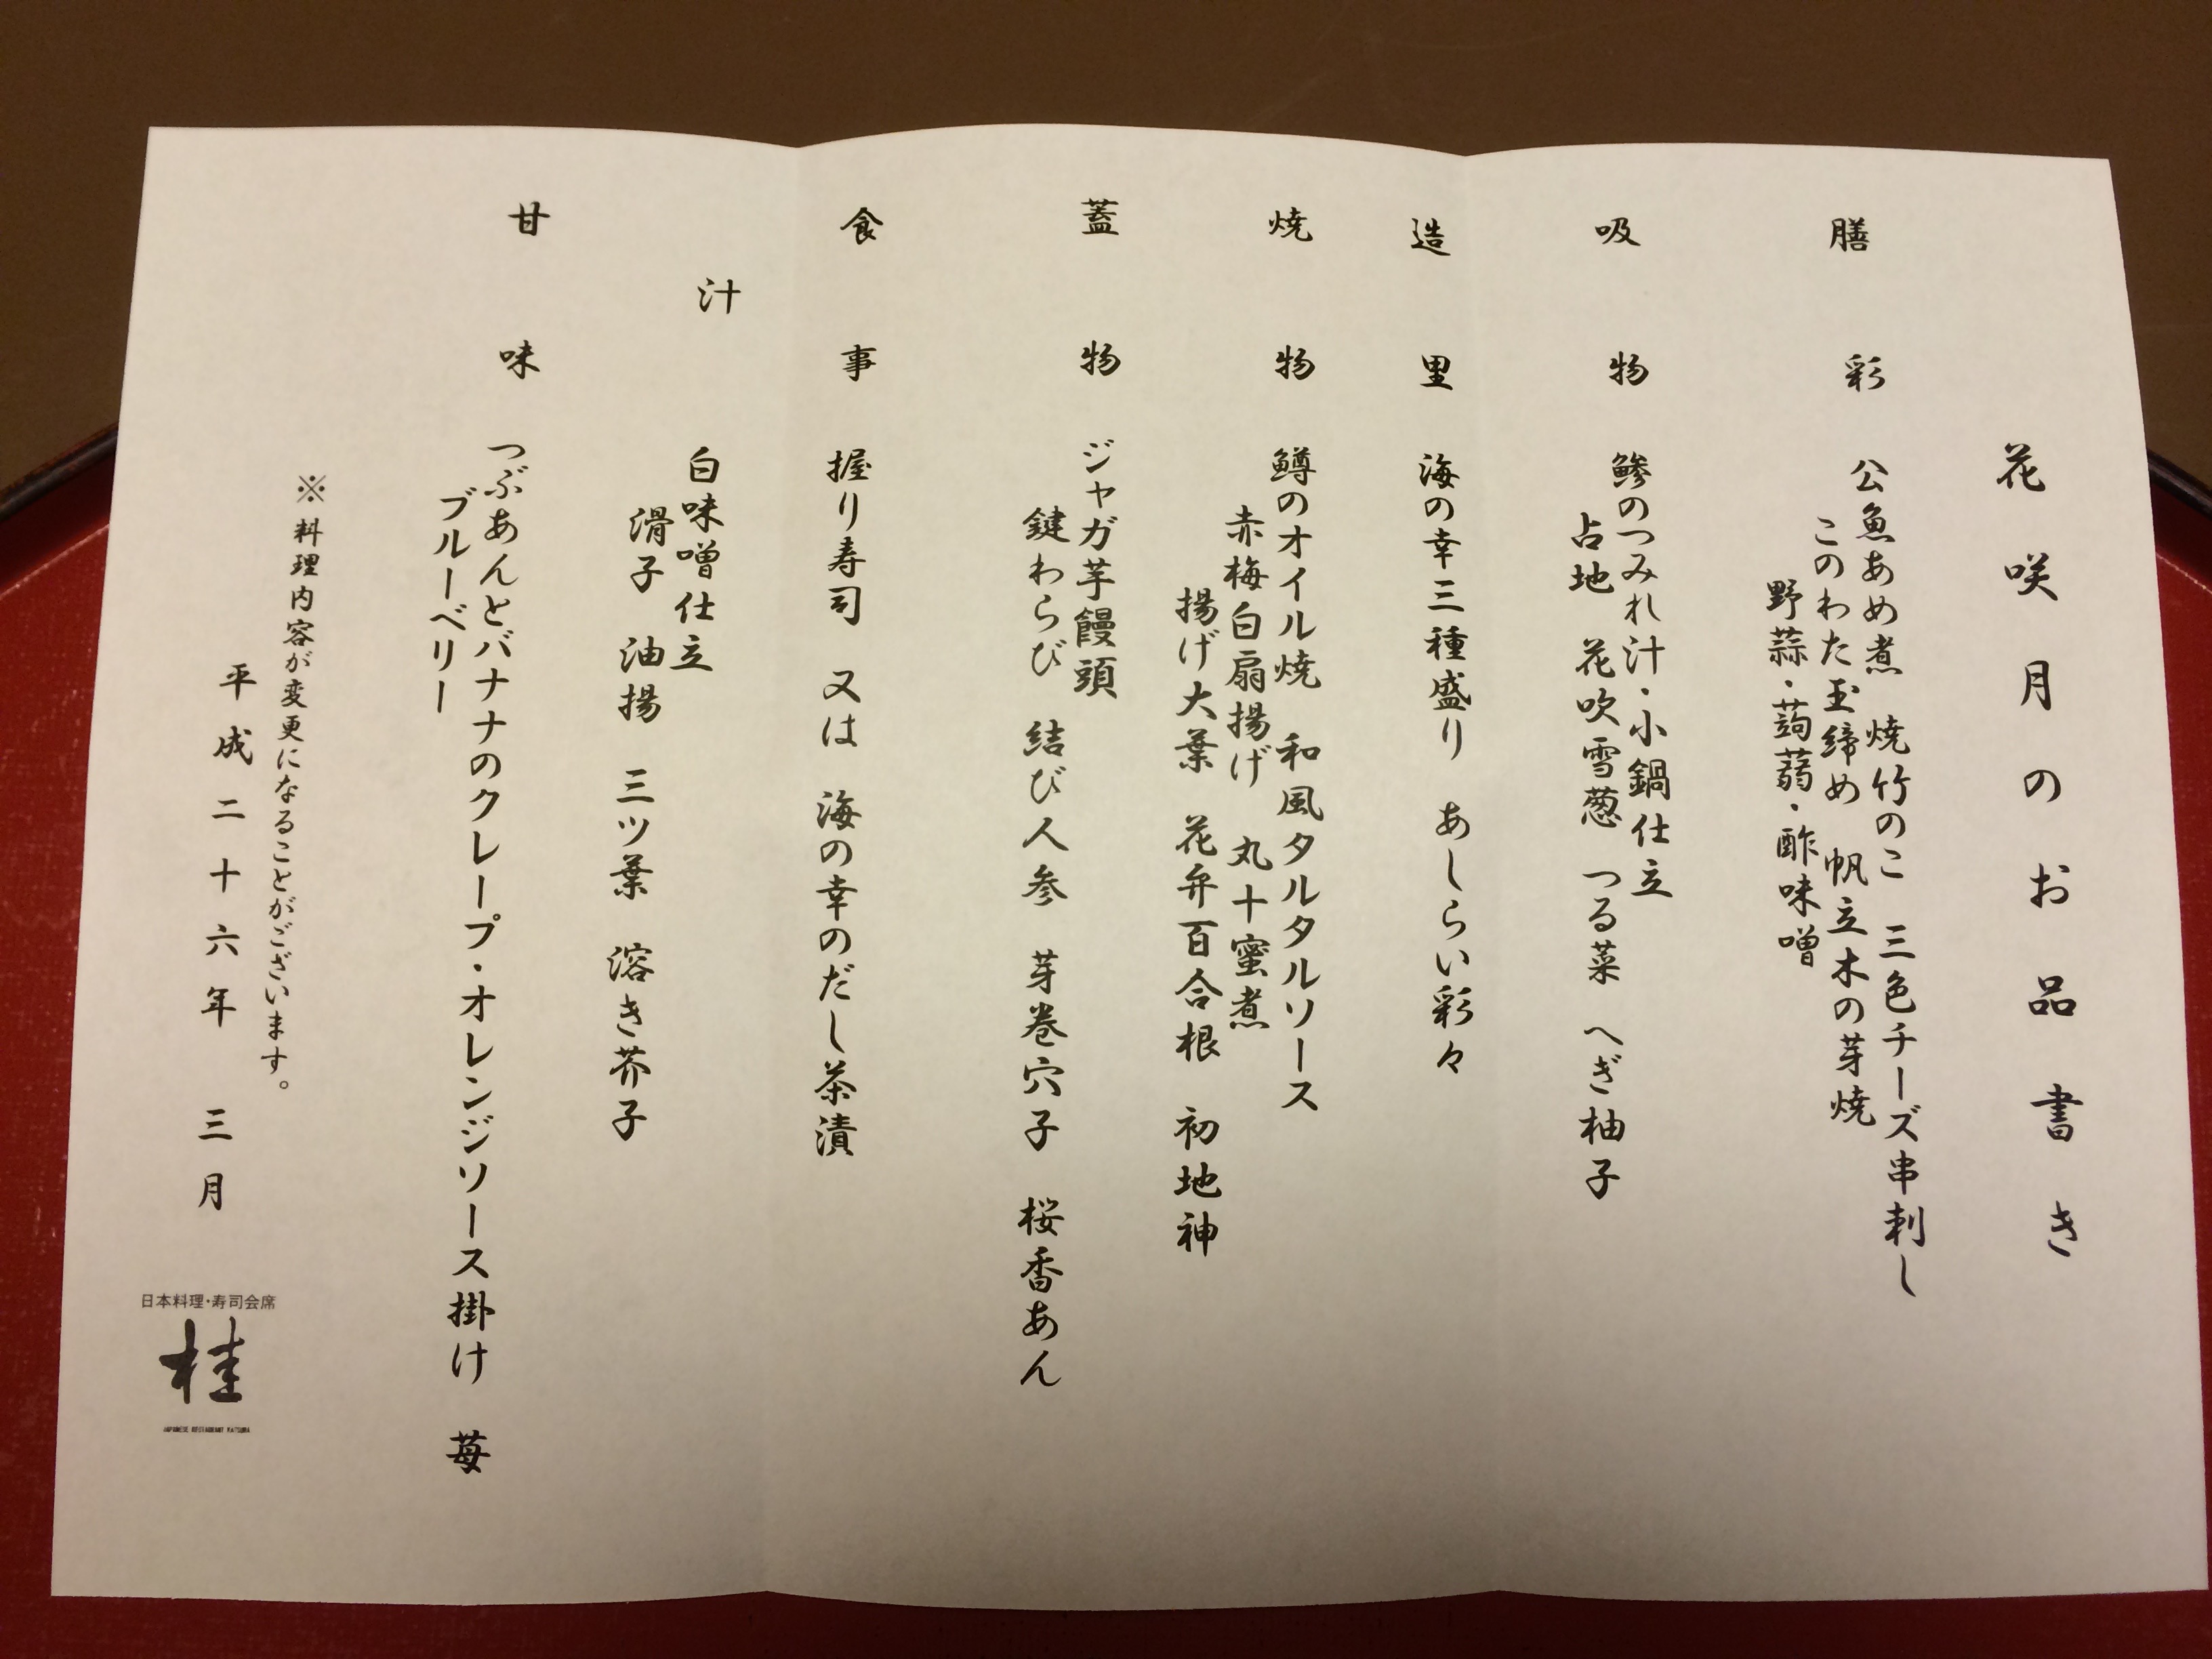 花咲月のお品書き
膳彩 公魚あめ煮 焼竹のこ 三色チーズ串刺し
このわた玉締め 帆立木の芽焼
野蒜・蒟蒻・酢味噌
吸物 鯵のつみれ汁・小鍋仕立
占地 花吹雪葱 つる菜 へぎ柚子
造里 海の幸三種盛り あしらい彩々
焼物 鱒のオイル焼 和風タルタルソース
赤梅白扇揚げ 丸十蜜煮
揚げ大葉 花弁百合根 初地神
蓋物 ジャガ芋饅頭
鍵わらび 結び人参 芽巻穴子 桜香あん
食事 握り寿司 又は 海の幸のだし茶漬
汁 白味噌仕立
滑子 油揚 三ツ葉 溶き芥子
甘味 つぶあんとバナナのクレープ・オレンジソース掛け 苺
ブルーベリー
※料理内容が変更になることがございます。
平成二十六年 三月
日本料理・寿司会席
桂
JAPANESE RESTAURANT KATSURA